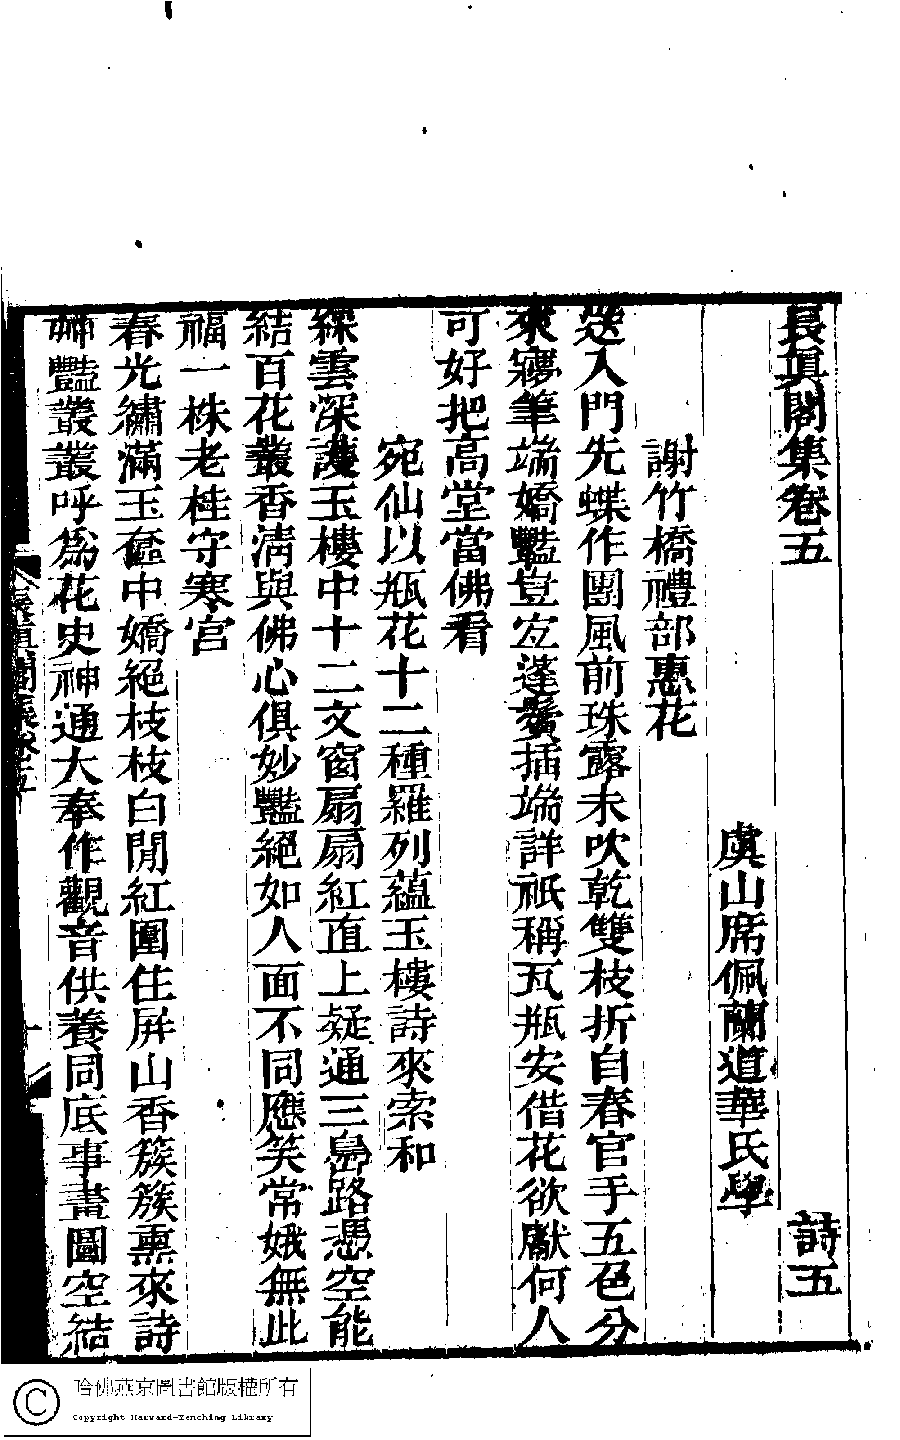 長真閣集卷五
詩五
虞山席佩蘭道華氏學
謝竹橋禮部惠花
送入門先蝶作團風前珠露未吹乾雙枝折自春官手五色分
來夢筆端嬌豔豈宜蓬鬢插端詳祇稱瓦瓶安借花欲獻何人
可好把高堂當佛看
宛仙以瓶花十二種羅列蘊玉樓詩來索和
綵雲深護玉樓中十二文窗扇扇紅直上疑通三島路憑空能
結百花叢香清與佛心俱妙豔絕如人面不同應笑常娥無此
福一株老桂守寒宮
春光繡滿玉奩中嬌絕枝枝白間紅圍住屏山香簇簇熏來詩
豔叢叢呼為花史神通大奉作觀音供養同底事畫圖空結
長真閣集卷五
哈佛燕京圖書館版權所有
Copyright Harvard-Yenching Library